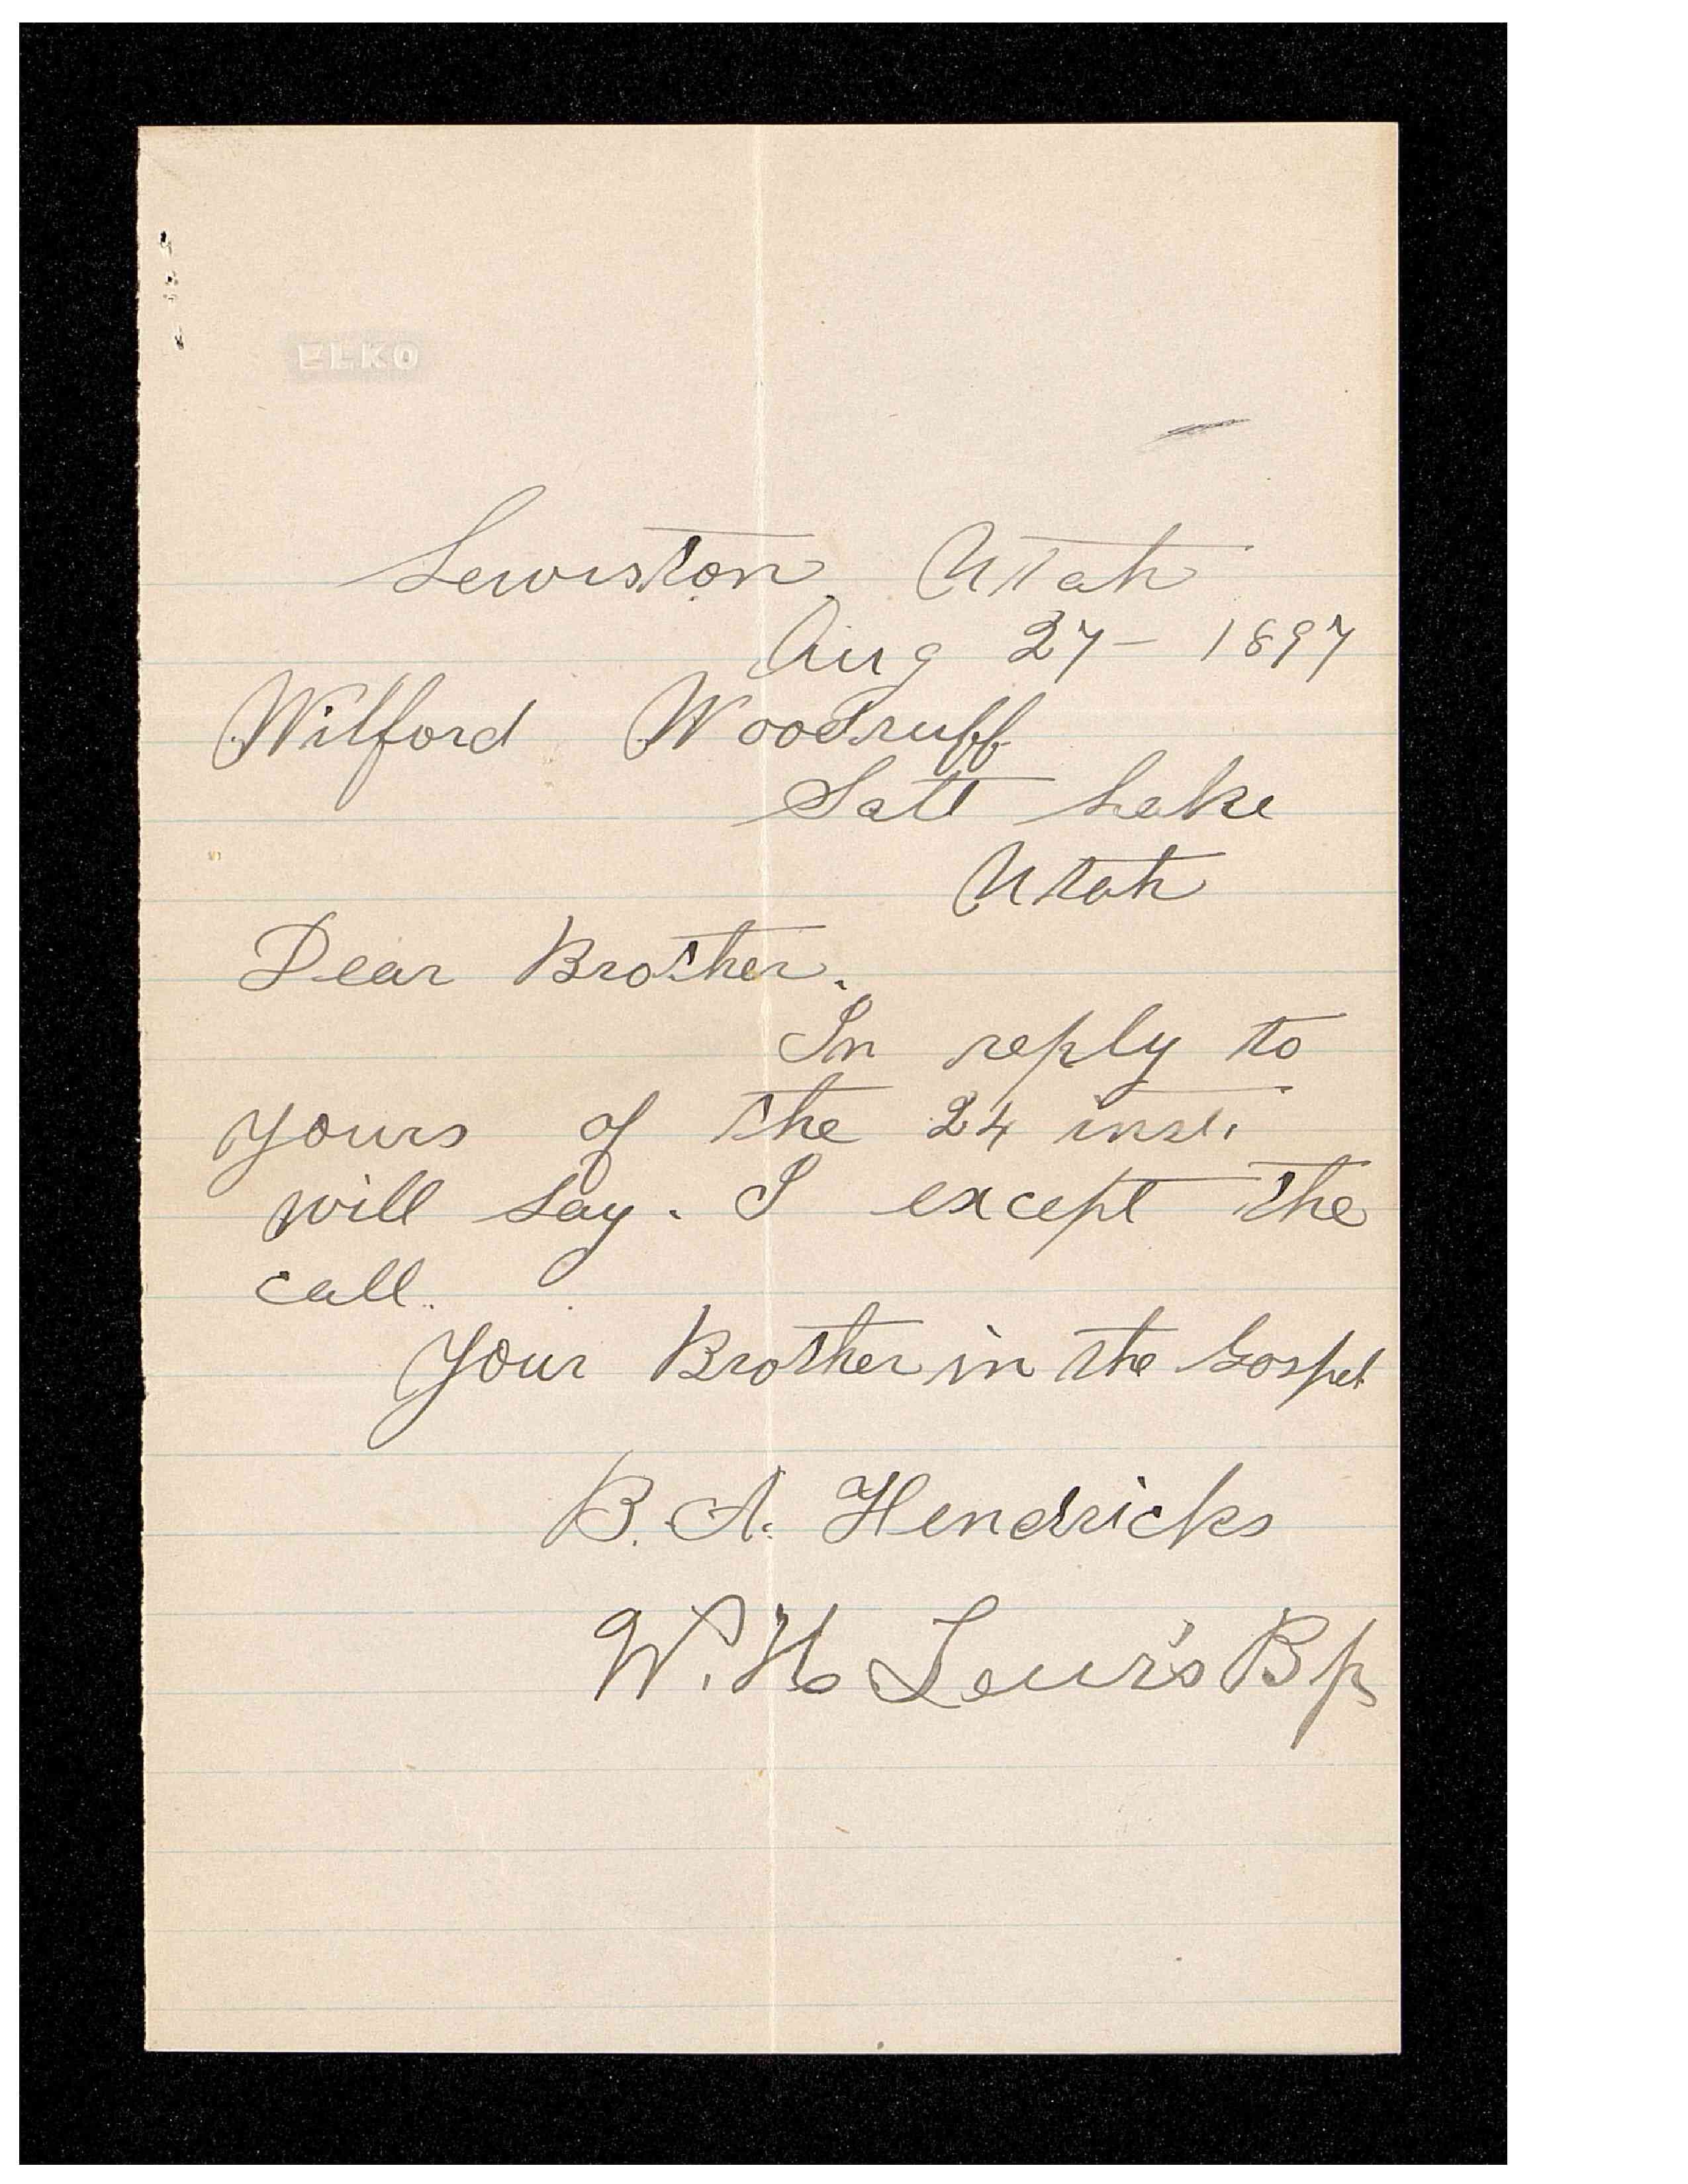 ELKO
Lewiston Utah
Aug 27 - 1897
Wilford Woodruff
Salt Lake
Utah
Dear Brother.
In reply to
yours of the 24 inst.
will say. I except the
call.
Your Brother in the Gospel
B. A. Hendricks
W. H Lewis Bp